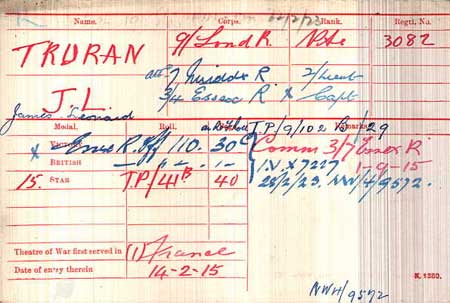 Name. Corps. Rank. Regtl. No.
TRURAN 9/Lond R. Pte 3082
att 7 Middx R 2/Lieut
J.L. 3/4 Essex R x Capt
James Leonard
Medal. Roll. Page. Remarks
Victory Off 110. 30 T.P/9/102 29
British " " - " - Comm 3/7 Essex R.
1-9-15
I.V. X 7227
15. Star T.P./41B 40 28/2/23. NW/4/9572.
Theatre of War first served in (1) France
Date of entry therein 14-2-15
K. 1380.
NWH/9572